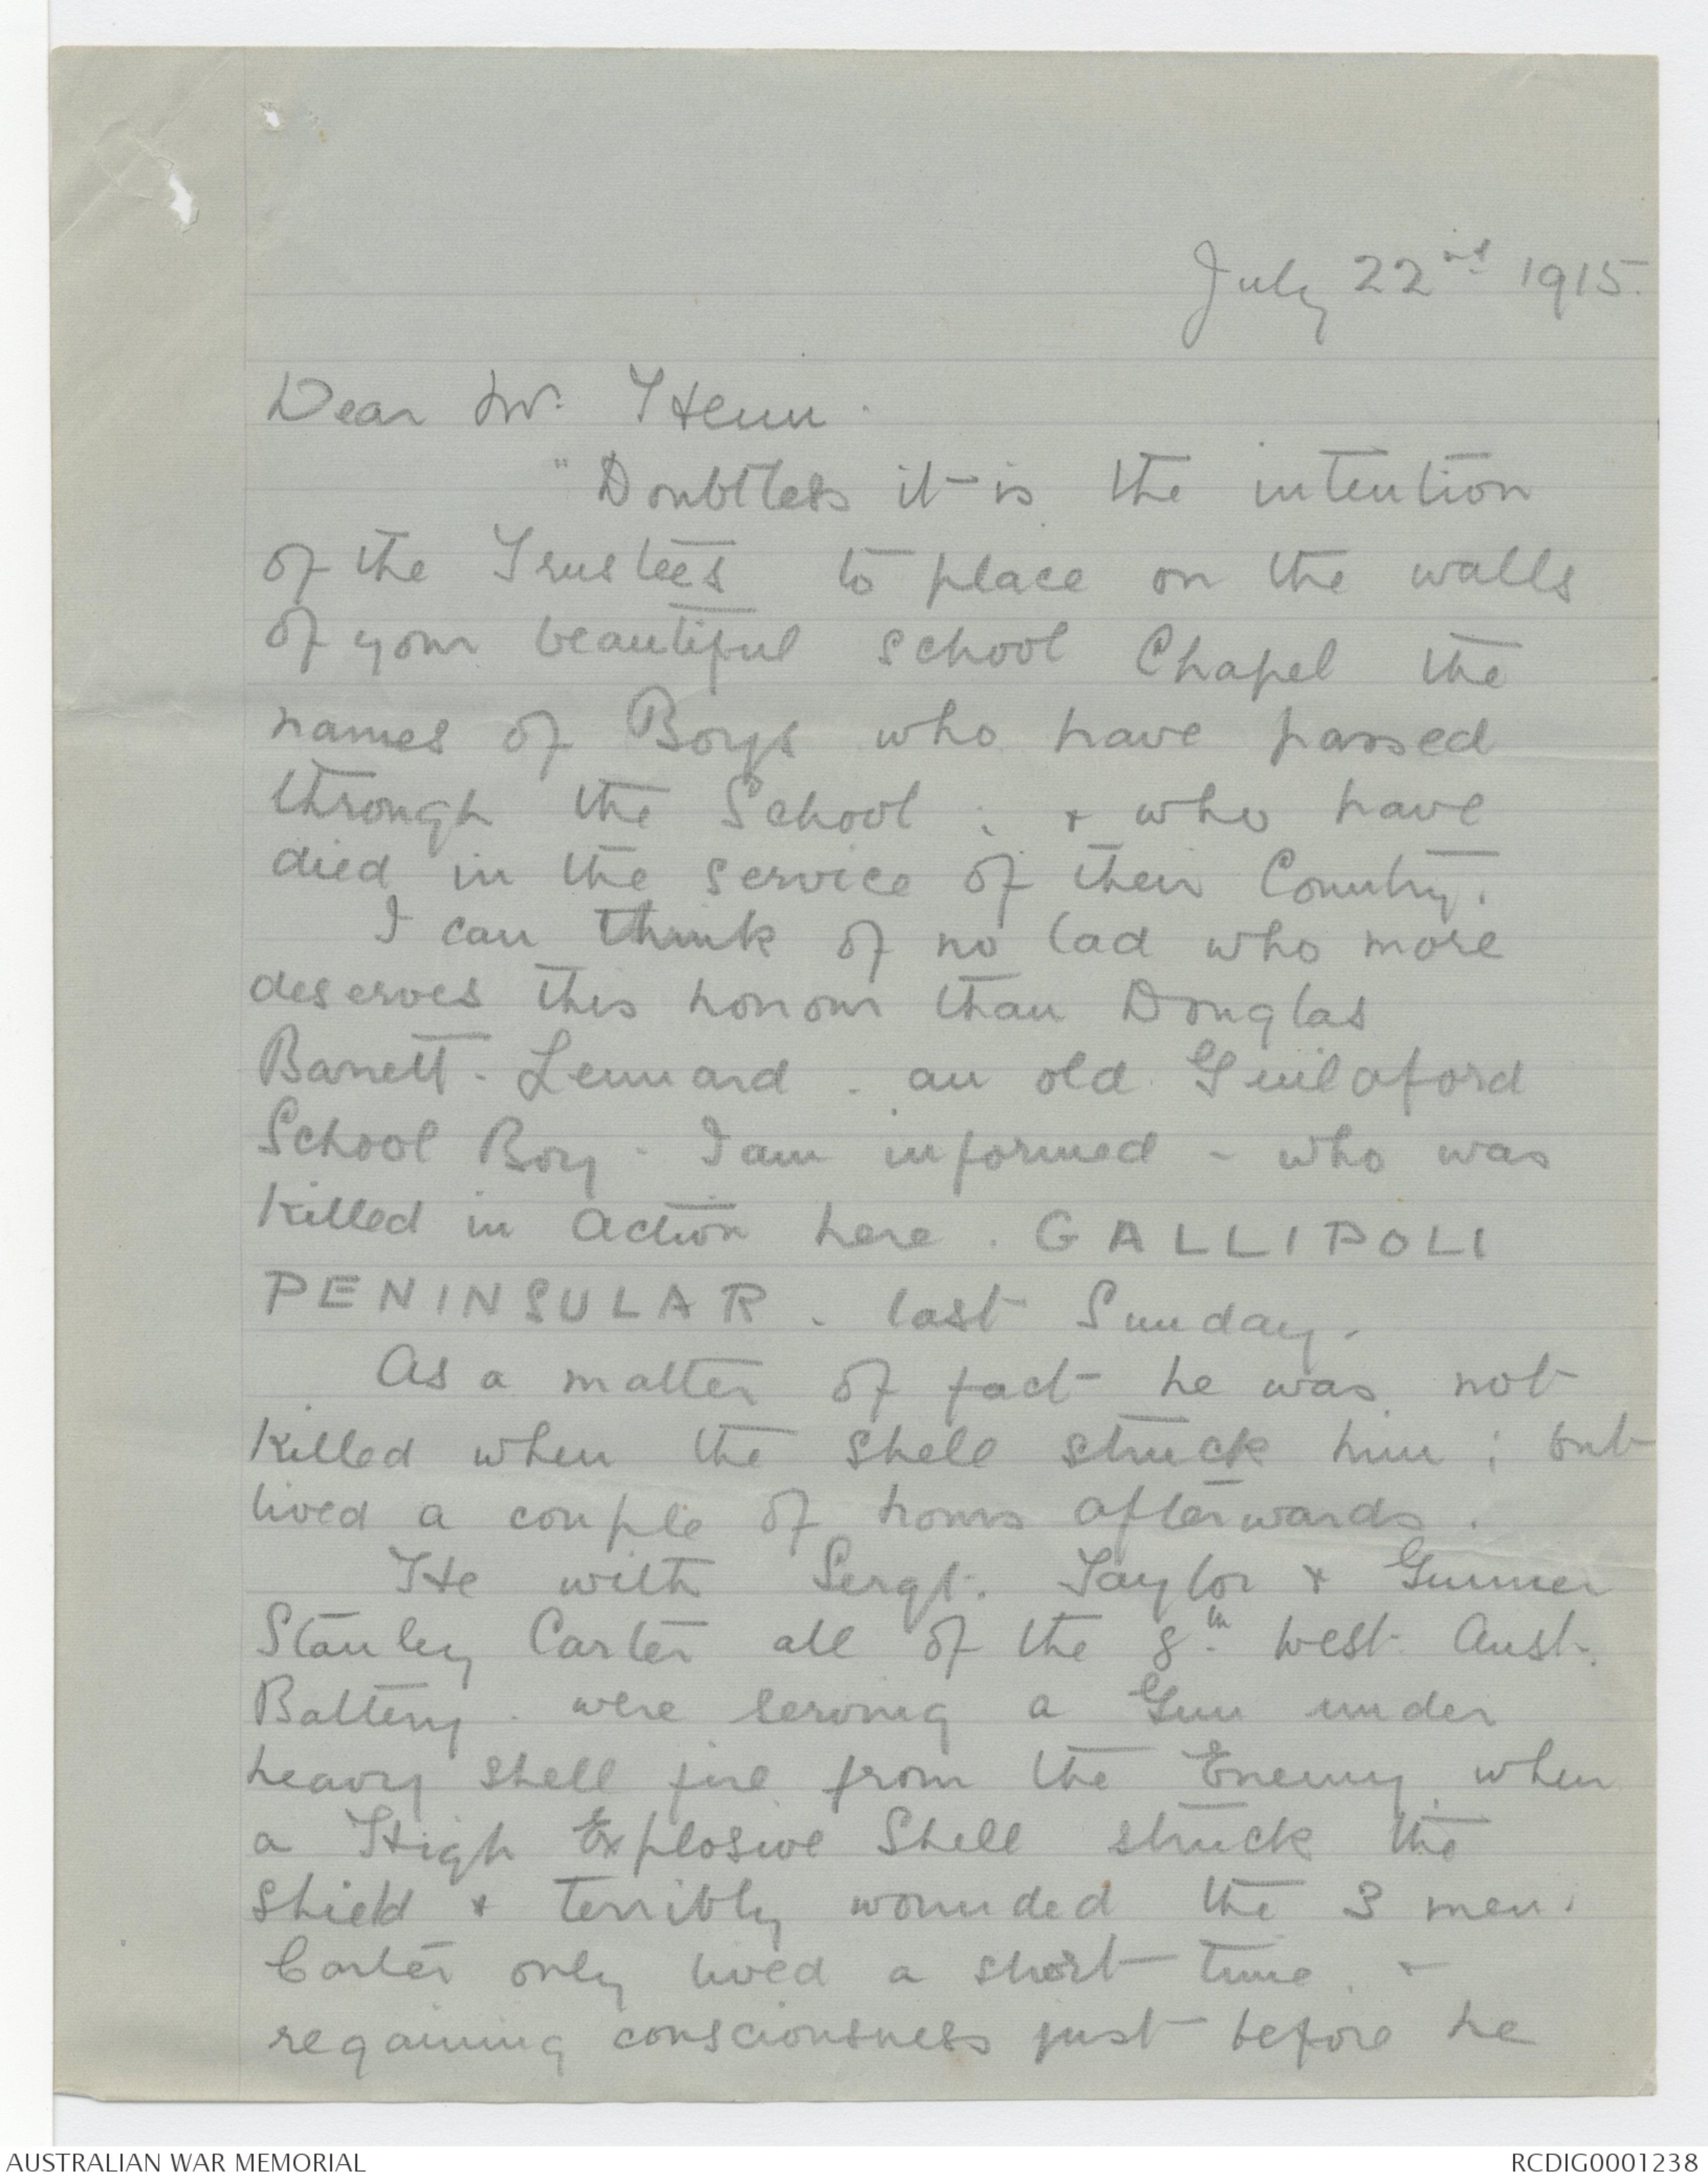 July 22nd 1915.
Dear Mr. Henn.
"Doubtless it is the intention
of the Trustees to place on the walls
of your beautiful school Chapel the
names of Boys who have passed
through the School; & who have
died in the service of their Country.
I can think of no lad who more
deserves this honour than Douglas
Barrett-Lennard. an old Guildford
School Boy. I am informed - who was
Killed in action here. GALLIPOLI
PENINSULAR. last Sunday.
As a matter of fact he was not
Killed when the shell struck him; but
lived a couple of hours afterwards.
He with Sergt. Taylor & Gunner
Stanley Carter all of the 8th West Aust.
Battery. were serving a Gun under
heavy shell fire from the Enemy when
a High Explosive Shell struck the
shield & terribly wounded the 3 men.
Carter only lived a short time. &
regaining consciousness just before he
AUSTRALIAN WAR MEMORIAL
RCDIG0001238